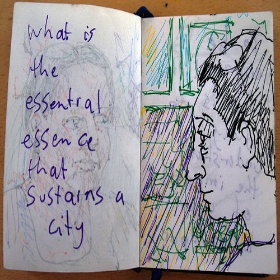 what is
the
essential
essence
that
sustains a
city